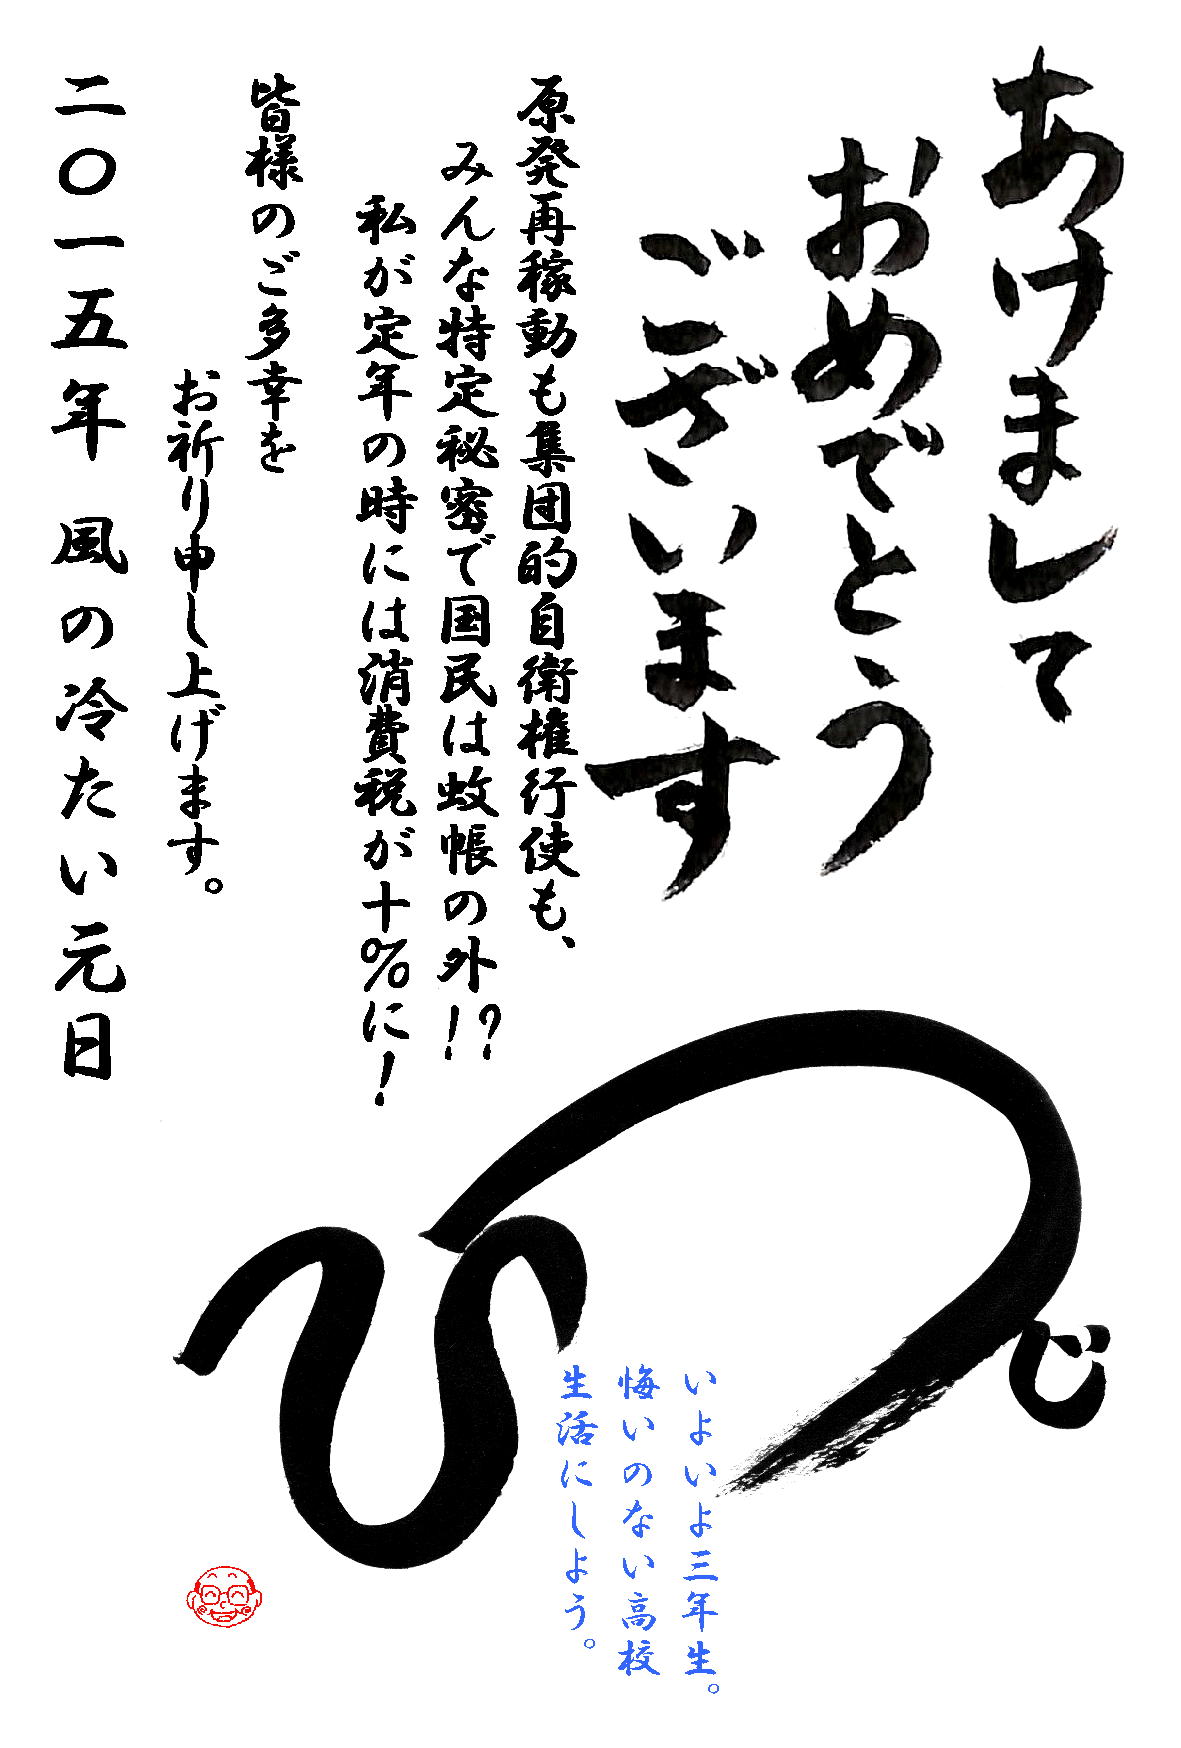 あけまして
おめでとう
ございます
原発再稼動も集団的自衛権行使も、
みんな特定秘密で国民は蚊帳の外!?
私が定年の時には消費税が十%に!
皆様のご多幸を
お祈り申し上げます。
二〇一五年 風の冷たい元日
ひつじ
いよいよ三年生。
悔いのない高校
生活にしよう。